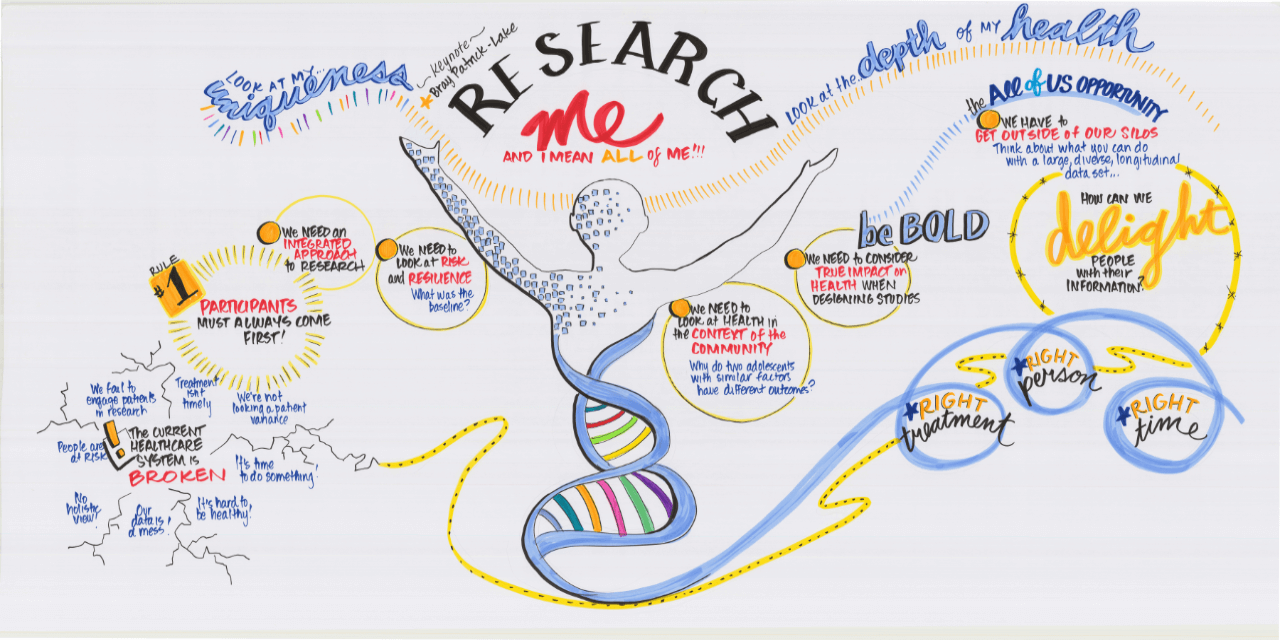 LOOK AT MY...
uniqueness
~Keynote~
Bray Patrick-Lake
RESEARCH
me
AND I MEAN ALL of ME!!!
LOOK at the... depth of MY health
the All of US OPPORTUNITY
WE HAVE to
GET OUTSIDE OF OUR SILOS
Think about what you can do
with a large, diverse, longitudinal
data set...
be BOLD
HOW CAN WE
delight
PEOPLE
with their
INFORMATION?
RULE
#1
PARTICIPANTS
MUST ALWAYS COME
FIRST!
We NEED an
INTEGRATED
APPROACH
to RESEARCH
We NEED to
LOOK at RISK
and RESILIENCE
What was the
baseline?
We NEED to
LOOK at HEALTH in
the CONTEXT of the
COMMUNITY
Why do two adolescents
with similar factors
have different outcomes?
WE NEED to CONSIDER
TRUE IMPACT on
HEALTH WHEN
DESIGNING STUDIES
RIGHT
treatment
RIGHT
person
RIGHT
time
We fail to
engage patients
in research
Treatment
isn't
timely
We're not
looking a patient
variance
People are
at RISK
! The CURRENT
HEALTHCARE
SYSTEM is
BROKEN
It's time
to do something!
No
holistic
view!
Our
data is
a mess!
It's hard to
be healthy!